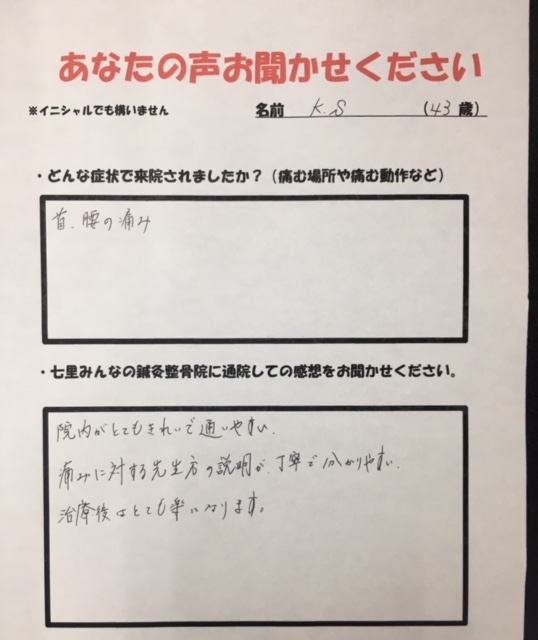 あなたの声お聞かせください
※イニシャルでも構いません 名前 K.S (43 歳)
・どんな症状で来院されましたか？（痛む場所や痛む動作など）
首、腰の痛み
・七里みんなの鍼灸整骨院に通院しての感想をお聞かせください。
院内がとてもきれいで通いやすい.
痛みに対する先生方の説明が、丁寧で分かりやすい.
治療後はとても楽になります。